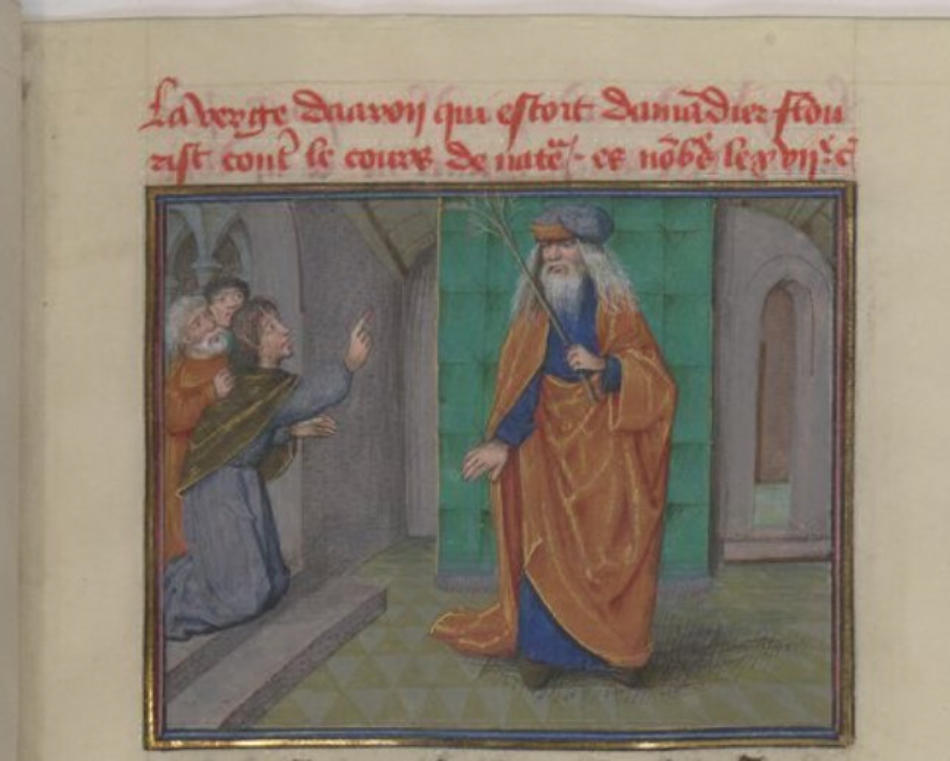 La verge daaron qui estoit damādier flou
rist cont̄ le cours de natē / es nōbē le xvii.e c̄